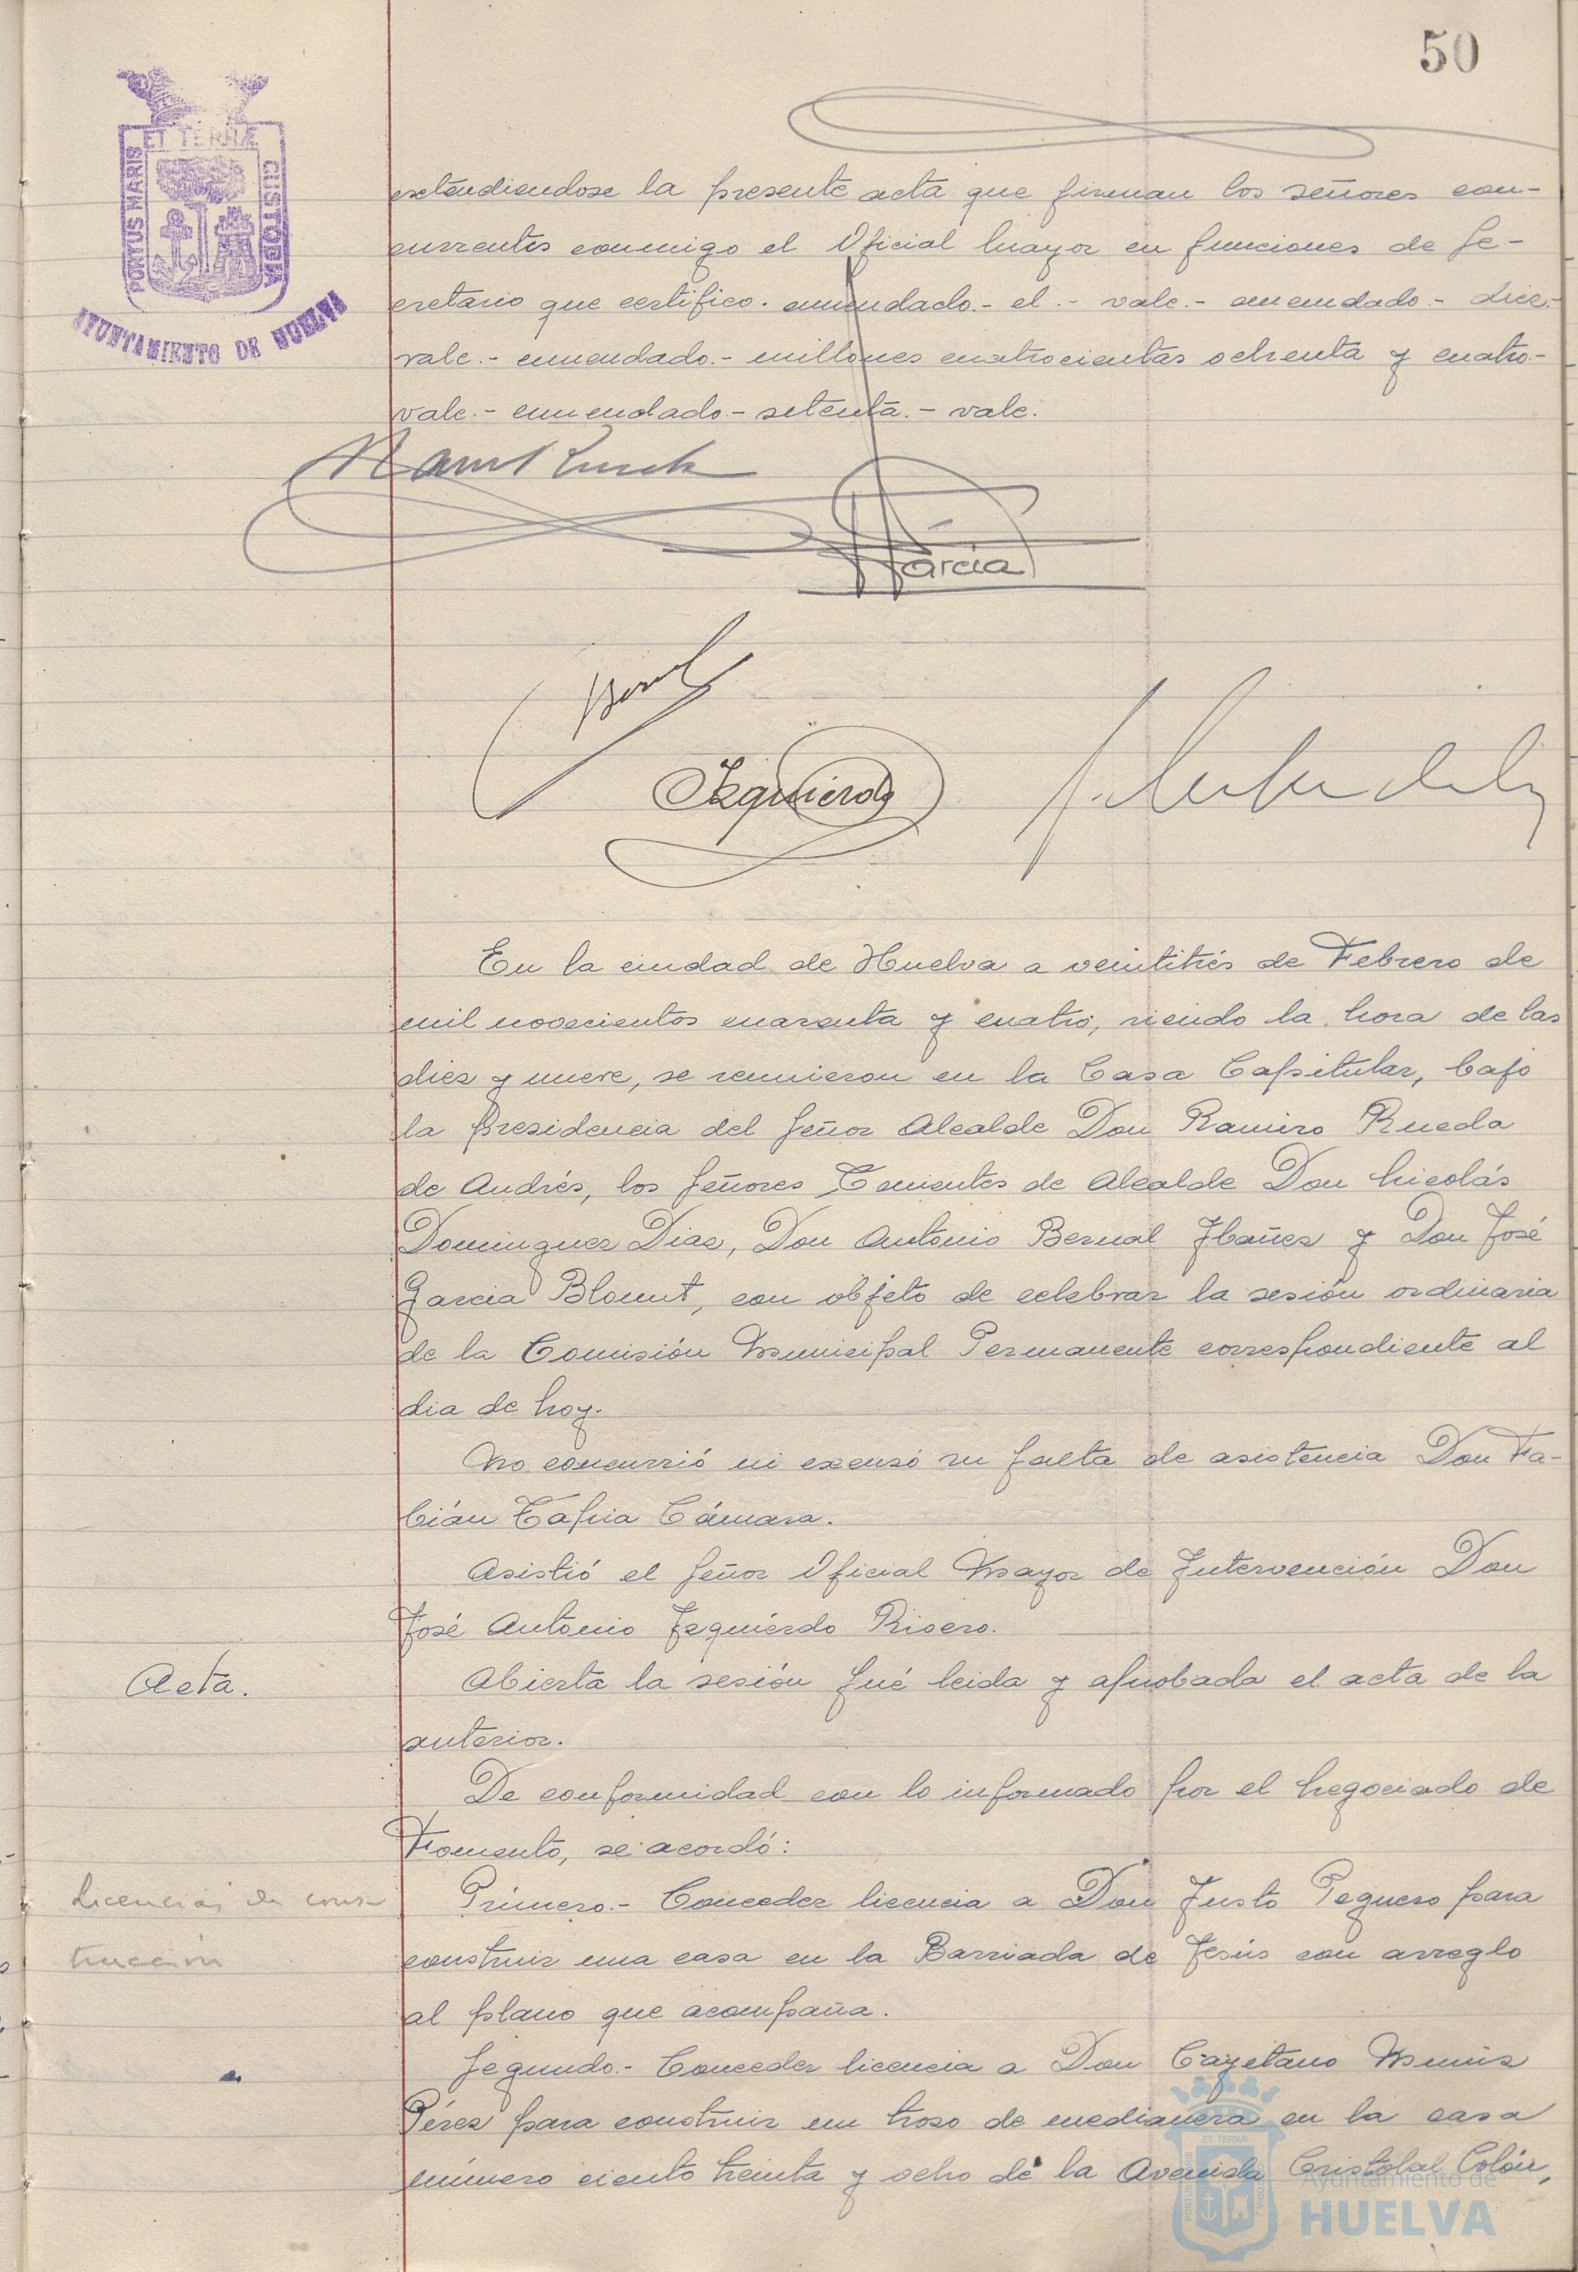 50
PORTUS MARIS
ET TERRÆ
CUSTODIA
AYUNTAMIENTO DE HUELVA
extendiendose la presente acta que firman los señores con-
currentes conmigo el Oficial Mayor en funciones de Se-
cretario que certifico. enmendado.- el.- vale.- enmendado.- diez.-
vale.- enmendado.- millones cuatrocientas ochenta y cuatro.-
vale.- enmendado.- setenta.- vale.
Garcia
Bernal
Izquierdo
En la ciudad de Huelva a veintitrés de Febrero de
mil novecientos cuarenta y cuatro, siendo la hora de las
diez y nueve, se reunieron en la Casa Capitular, bajo
la Presidencia del Señor Alcalde Don Ramiro Rueda
de Andrés, los Señores Tenientes de Alcalde Don Nicolás
Dominguez Diaz, Don Antonio Bernal Ibañez y Don José
Garcia Blount, con objeto de celebrar la sesión ordinaria
de la Comisión Municipal Permanente correspondiente al
dia de hoy.
No concurrió ni excusó su falta de asistencia Don Fa-
bián Tapia Cámara.
Asistió el Señor Oficial Mayor de Intervención Don
José Antonio Izquierdo Rivero.
Acta.
Abierta la sesión fué leida y aprobada el acta de la
anterior.
De conformidad con lo informado por el Negociado de
Fomento, se acordó:
Licencias de cons-
trucción
Primero.- Conceder licencia a Don Justo Peguero para
construir una casa en la Barriada de Jesús con arreglo
al plano que acompaña.
Segundo.- Conceder licencia a Don Cayetano Muñiz
Pérez para construir un trozo de medianera en la casa
número ciento treinta y ocho de la Avenida Cristobal Colón,
Ayuntamiento de
HUELVA